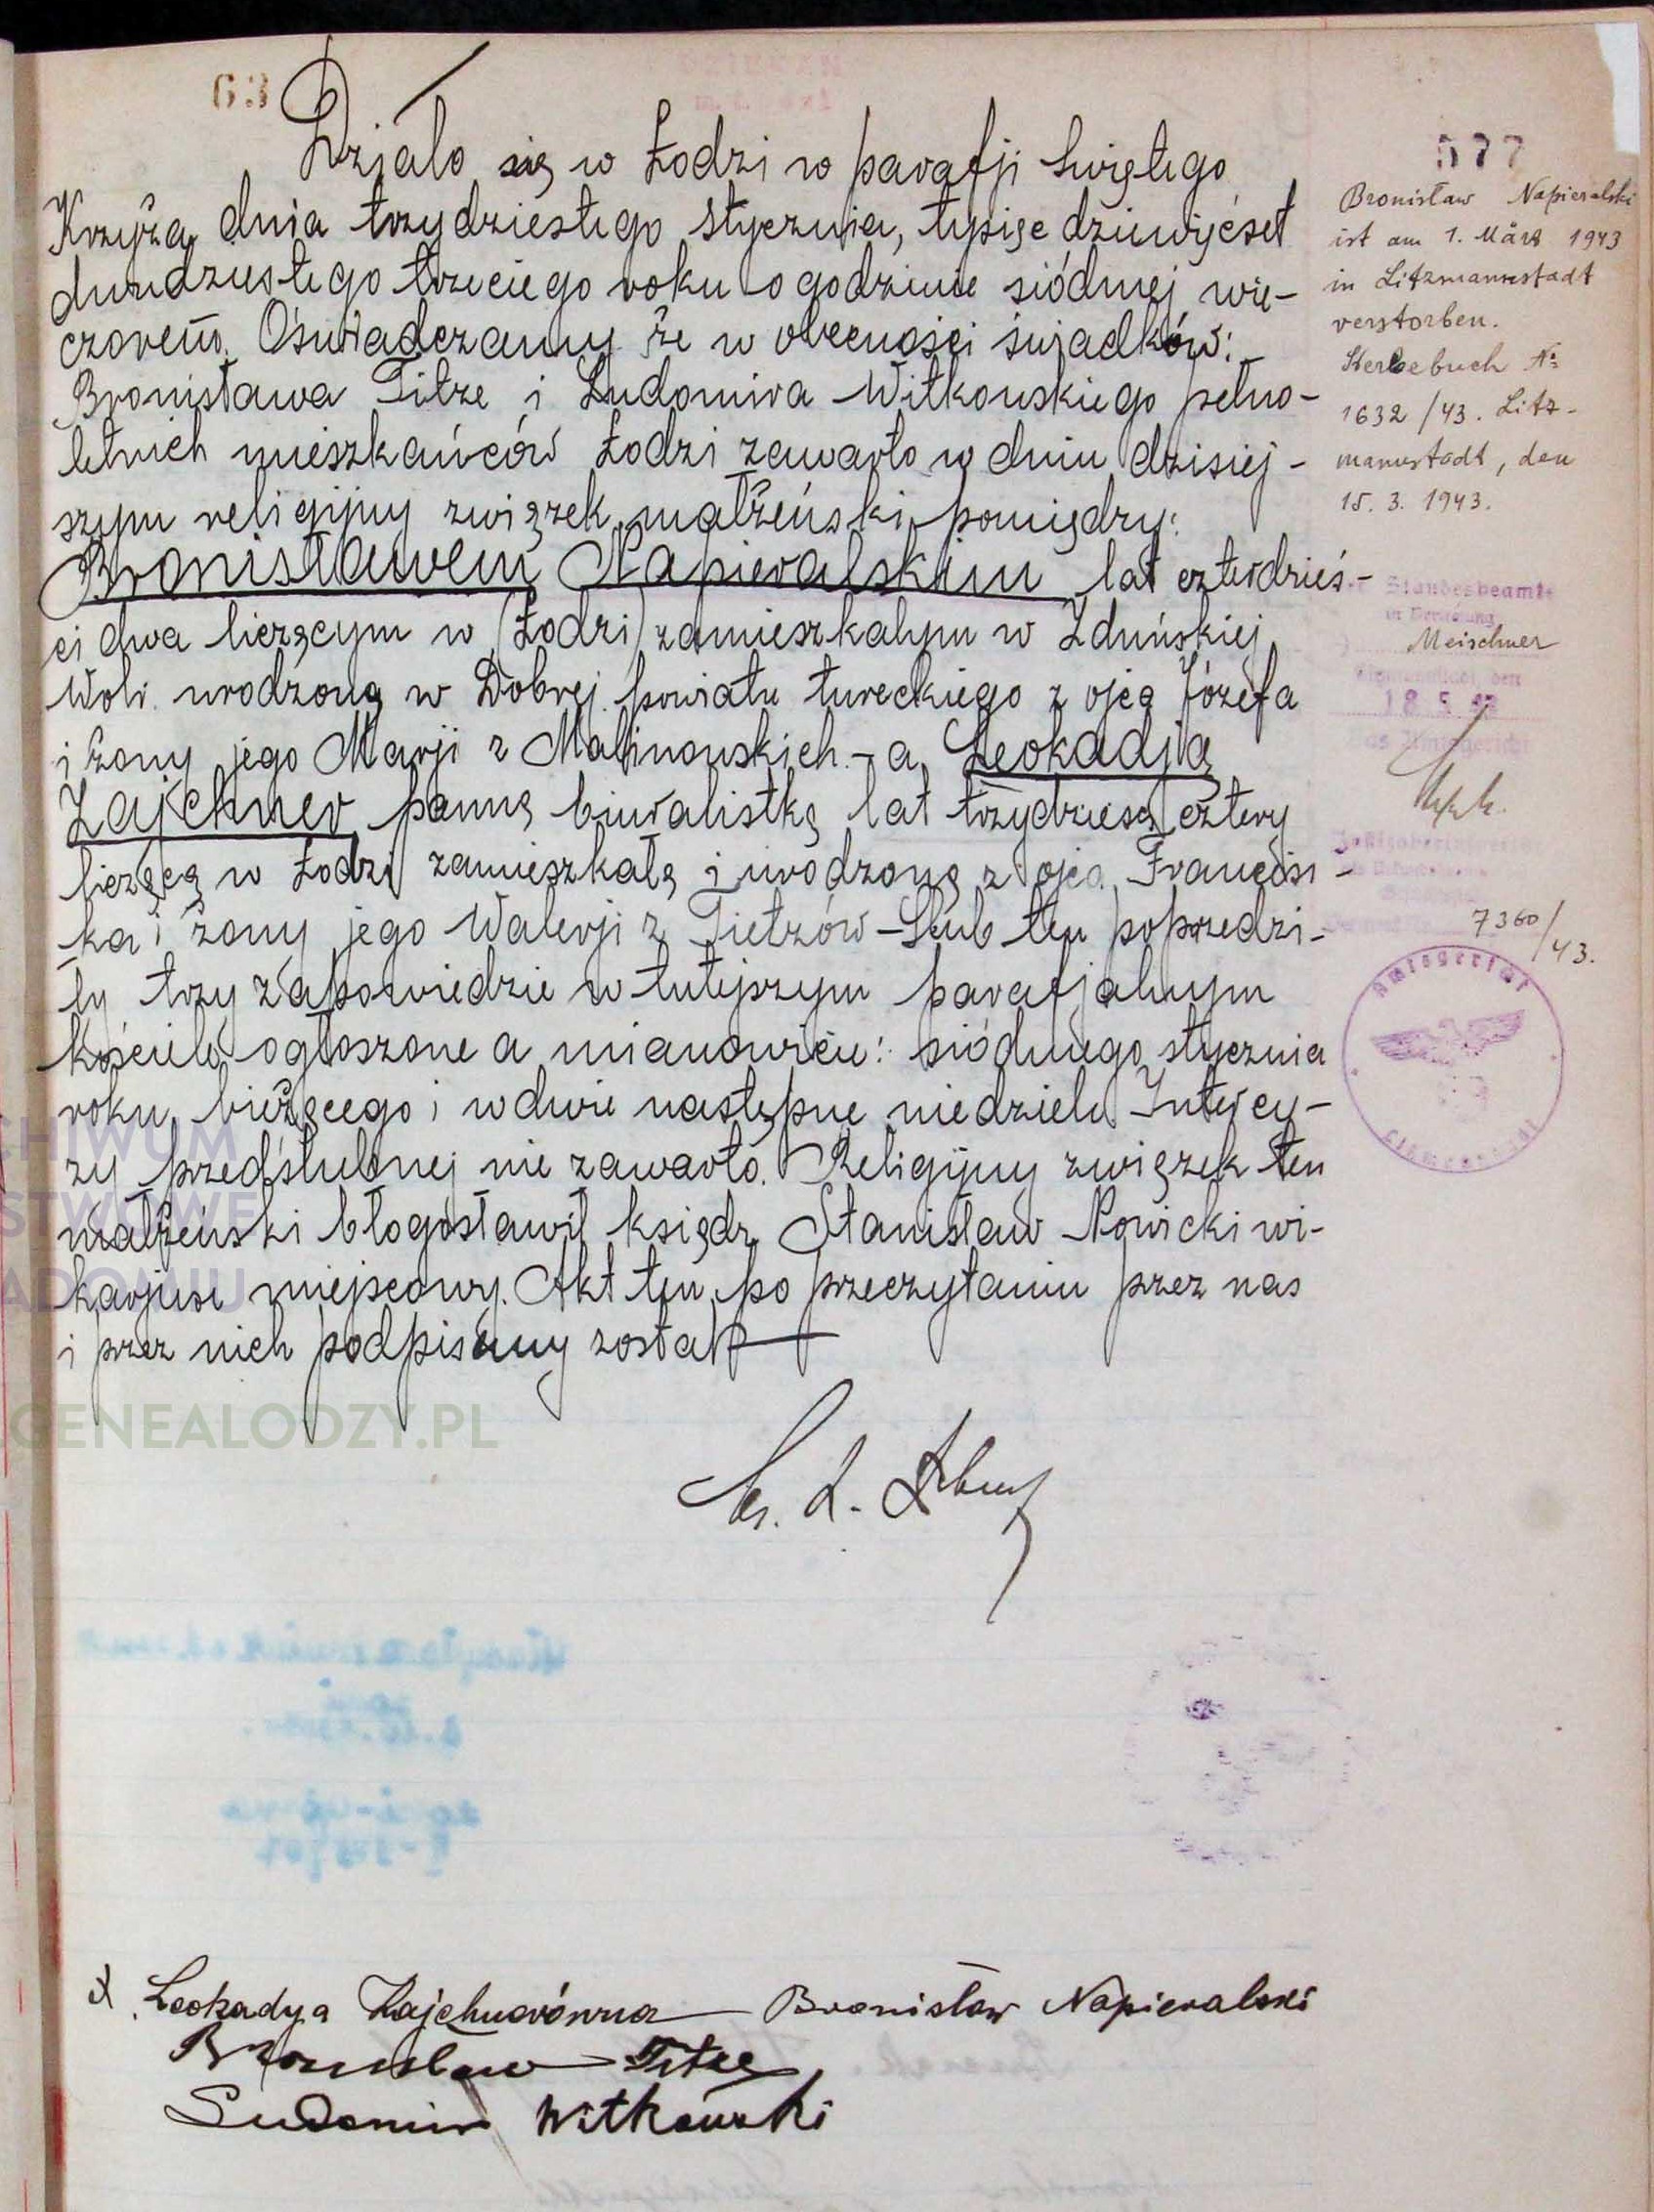 63
Działo się w Łodzi w parafji Świętego
Krzyża dnia trzydziestego stycznia, tysiąc dziewięćset
dwudziestego trzeciego roku o godzinie siódmej wie-
czorem. Oświadczamy że w obecności świadków:
Bronisława Titze i Ludomira Witkowskiego pełno-
letnich mieszkańców Łodzi zawarto w dniu dzisiej-
szym religijny związek małżeński pomiędzy:
Bronisławem Napieralskim lat czterdzieś-
ci dwa liczącym w (Łodzi) zamieszkałym w Zduńskiej
Woli urodzoną w Dobrej powiatu tureckiego z ojca Józefa
i żony jego Marji z Malinowskich - a Leokadją
Zajchner panną biuralistką lat trzydzieści cztery
liczącą w Łodzi zamieszkałą i urodzoną z ojca Francisz-
ka i żony jego Walerji z Tietzów - Ślub ten poprzedzi-
ły trzy zapowiedzie w tutejszym parafjalnym
kościele ogłoszone a mianowicie: siódmego stycznia
roku bieżącego i w dwie następne niedziele Intercy-
zy przedślubnej nie zawarto. Religijny związek ten
małżeński błogosławił ksiądz Stanisław Nowicki wi-
karjusz miejscowy. Akt ten po przeczytaniu przez nas
i przez nich podpisany został
Leokadya Zajchnerówna Bronisław Napieralski
Bronisław Titze
Ludomir Witkowski
577
Bronisław Napieralski
ist am 1. März 1943
in Litzmannstadt
verstorben.
Sterbebuch No
1632/43. Litz-
mannstadt, den
15. 3. 1943.
Standesbeamte
in Vertretung
Meischner
den
18 5 43
Das Amtsgericht
7360/43.
Amtsgericht
ARCHIWUM
PAŃSTWOWE
W RADOMIU
GENEALODZY.PL